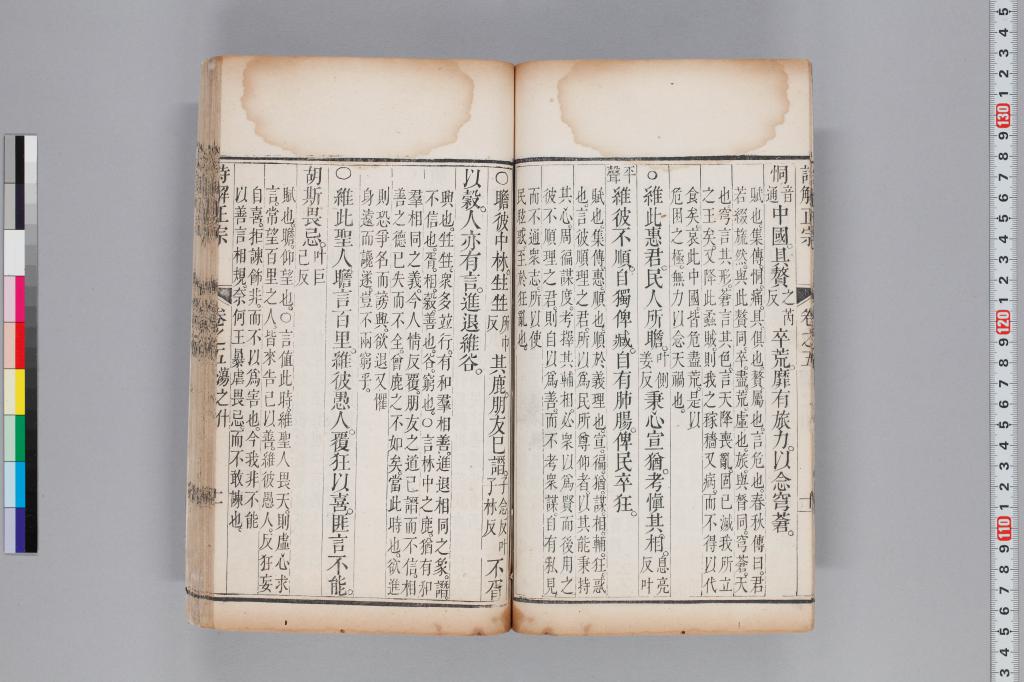 恫音通中國具贅之芮反卒荒靡有旅力以念穹蒼
賦也集傳恫痛具俱也贅屬也言危也春秋傳曰君
若綴旒然與此贅同卒盡荒虛也旅與膂同穹蒼天
也穹言其形蒼言其色言天降喪亂固已滅我所立
之王矣又降此蟊賊則我之稼穡又病而不得以代
食矣哀此中國皆危盡荒是以
危困之極無力以念天禍也
維此惠君民人所瞻叶側姜反秉心宣猶考慎其相息亮反叶
平聲維彼不順自獨俾臧自有肺腸俾民卒狂
賦也集傳惠順也順於義理也宣徧猶謀相輔狂惑
也言彼順理之君所以為民所尊仰者以其能秉持
其心周徧謀度考擇其輔相必衆以為賢而後用之
彼不順理之君則自以為善而不考衆謀自有私見
而不通衆志所以使
民眩惑至於狂亂也
○瞻彼中林甡甡所巾反其鹿朋友已譖子念反叶子林反不胥
以穀人亦有言進退維谷
興也甡甡衆多並行有和羣相善進退相同之象譖
不信也胥相穀善也谷窮也○言林中之鹿猶有和
羣相同之義今人情反覆朋友之道已譖而不信相
善之德已失而不全曾鹿之不如矣當此時也欲進
則恐爭名而謗興欲退又懼
身遠而讒遂豈不兩窮乎
○維此聖人瞻言百里維彼愚人覆狂以喜匪言不能
胡斯畏忌叶巨己反
賦也瞻仰望也○言值此時維聖人畏天則虛心求
言常望百里之人皆來告己以善維彼愚人反狂妄
自喜拒諫飾非而不以為害也今我非不能
以善言相規奈何王暴虐畏忌而不敢諫也
詩解正宗
卷之五蕩之什
詩解正宗
卷之五